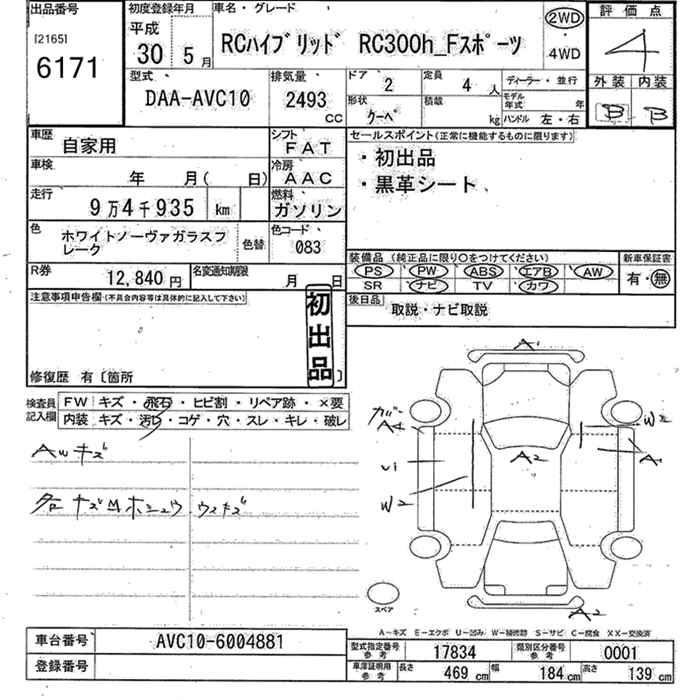 出品番号
[2165]
6171
初度登録年月
平成
30 5月
車名・グレード
RCハイブリッド RC300h_Fスポーツ
2WD
・
4WD
評価点
4
外装 内装
B B
型式
DAA-AVC10
排気量
2493
CC
ドア
2
定員
4 人
形状
クーペ
積載
kg
ディーラー・並行
モデル年式 年
ハンドル 左・右
車歴
自家用
シフト
FAT
車検
年 月( 日)
冷房
AAC
走行
9万4千935 km
燃料
ガソリン
色
ホワイトノーヴァガラスフレーク
色替
色コード
083
R券
12,840円
名変通知期限
月 日
セールスポイント(正常に機能するものに限ります)
・初出品
・黒革シート
装備品 (純正品に限り○をつけてください)
PS PW ABS エアB AW
SR ナビ TV カワ
新車保証書
有・無
後日品
取説・ナビ取説
注意事項申告欄(不具合内容等は具体的に記入して下さい)
初出品
修復歴 有〔箇所 〕
検査員記入欄
FW キズ・飛石・ヒビ割・リペア跡・×要
内装 キズ・汚レ・コゲ・穴・スレ・キレ・破レ
AWキズ
A1
ガラー
A4
W2
A2
A1
U1
W2
スペア
A2
A-キズ E-エクボ U-凹み W-補修跡 S-サビ C-腐食 XX-交換済
車台番号
AVC10-6004881
登録番号
型式指定番号
参考
17834
類別区分番号
参考
0001
車庫証明用
参考
長さ
469 cm
幅
184 cm
高さ
139 cm